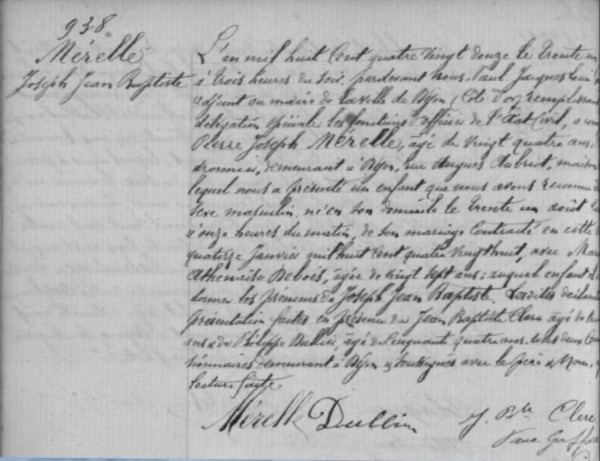 938
Mérelle
Joseph Jean Baptiste
L'an mil huit cent quatre vingt douze le trente un
à trois heures du soir, pardevant nous, Paul Jacques
adjoint au maire de la ville de Dijon, (Côte d'or) remplissant
délégation spéciale les fonctions d'officier de l'Etat civil, a
Pierre Joseph Mérelle, âgé de vingt quatre ans,
demeurant à Dijon, rue Hugues Aubriot, maison
lequel nous a présenté un enfant que nous avons reconnu
sexe masculin, né en son domicile le trente un août
à onze heures du matin, de son mariage contracté en cette
quatorze janvier mil huit cent quatre vingt huit, avec
Athenaïse Debois, âgée de vingt sept ans; auquel enfant
donner les prénoms de Joseph Jean Baptiste. Lesdites
présentation faites en présence de Jean Baptiste Clerc âgé de
ans & de Philippe âgé de cinquante quatre ans, tous deux
demeurant à Dijon & soussignés avec le père & Nous,
lecture faite.
Mérelle J. Bte Clerc